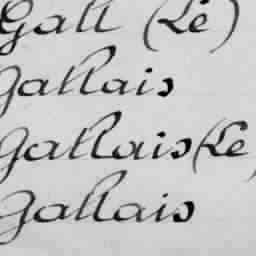 Gall (Le)
Gallais
Gallais (Le
Gallais